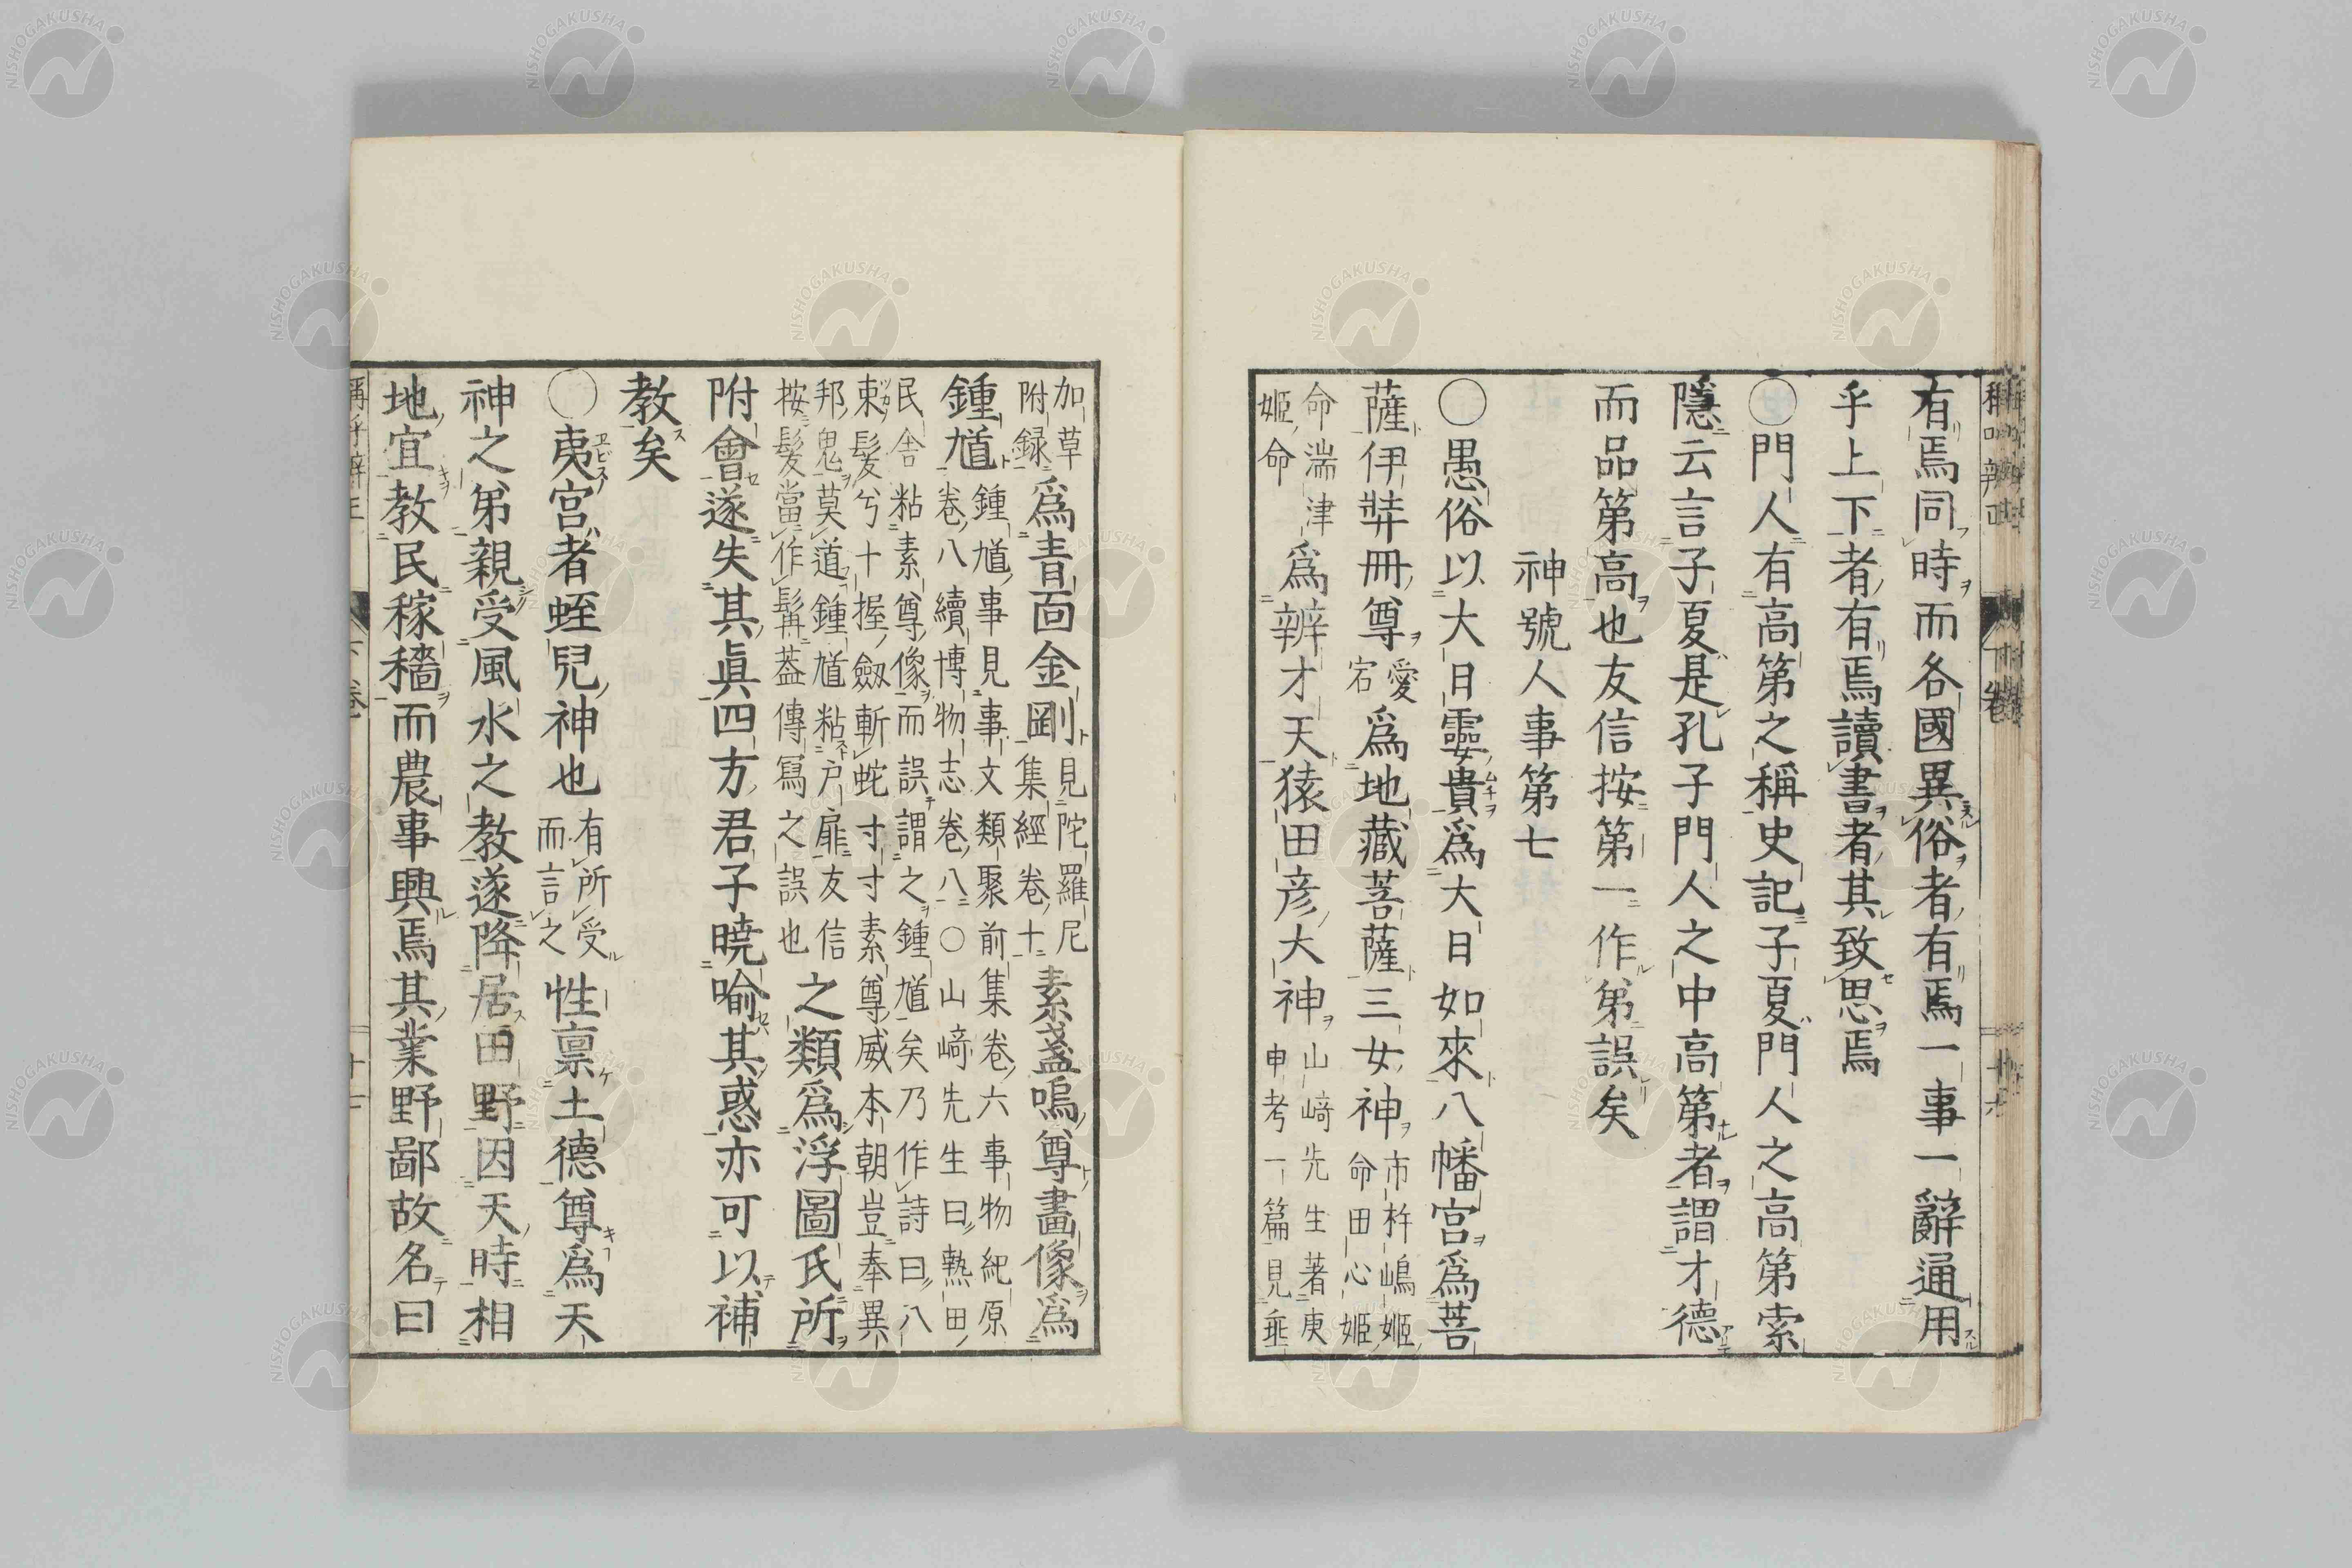 有焉同時而各國異俗者有焉一事一辭通用
乎上下者有焉讀書者其致思焉
○門人有高第之稱史記子夏門人之高第索
隱云言子夏是孔子門人之中高第者謂才德
而品第高也友信按第一作弟誤矣
神號人事第七
○愚俗以大日孁貴爲大日如來八幡宮爲菩
薩伊弉冊尊愛宕爲地藏菩薩三女神市杵嶋姬命田心姬
命湍津姬命爲辨才天猿田彦大神山﨑先生著庚申考一篇見垂
加草附録爲青面金剛見陀羅尼集經卷十素盞嗚尊畫像爲
鍾馗鍾馗事見事文類聚前集卷六事物紀原卷八續博物志卷八○山﨑先生曰熱田
民舍粘素尊像而誤謂之鍾馗矣乃作詩曰八束髮兮十握劔斬蛇寸寸素尊威本朝豈奉異
邦鬼莫道鍾馗粘戸扉友信按髮當作髯葢傳寫之誤也之類爲浮圖氏所
附會遂失其眞四方君子曉喻其惑亦可以補
教矣
○夷宮者蛭兒神也有所受而言之性禀土德尊爲天
神之弟親受風水之教遂降居田野因天時相
地宜教民稼穡而農事興焉其業野鄙故名曰
NISHOGAKUSHA